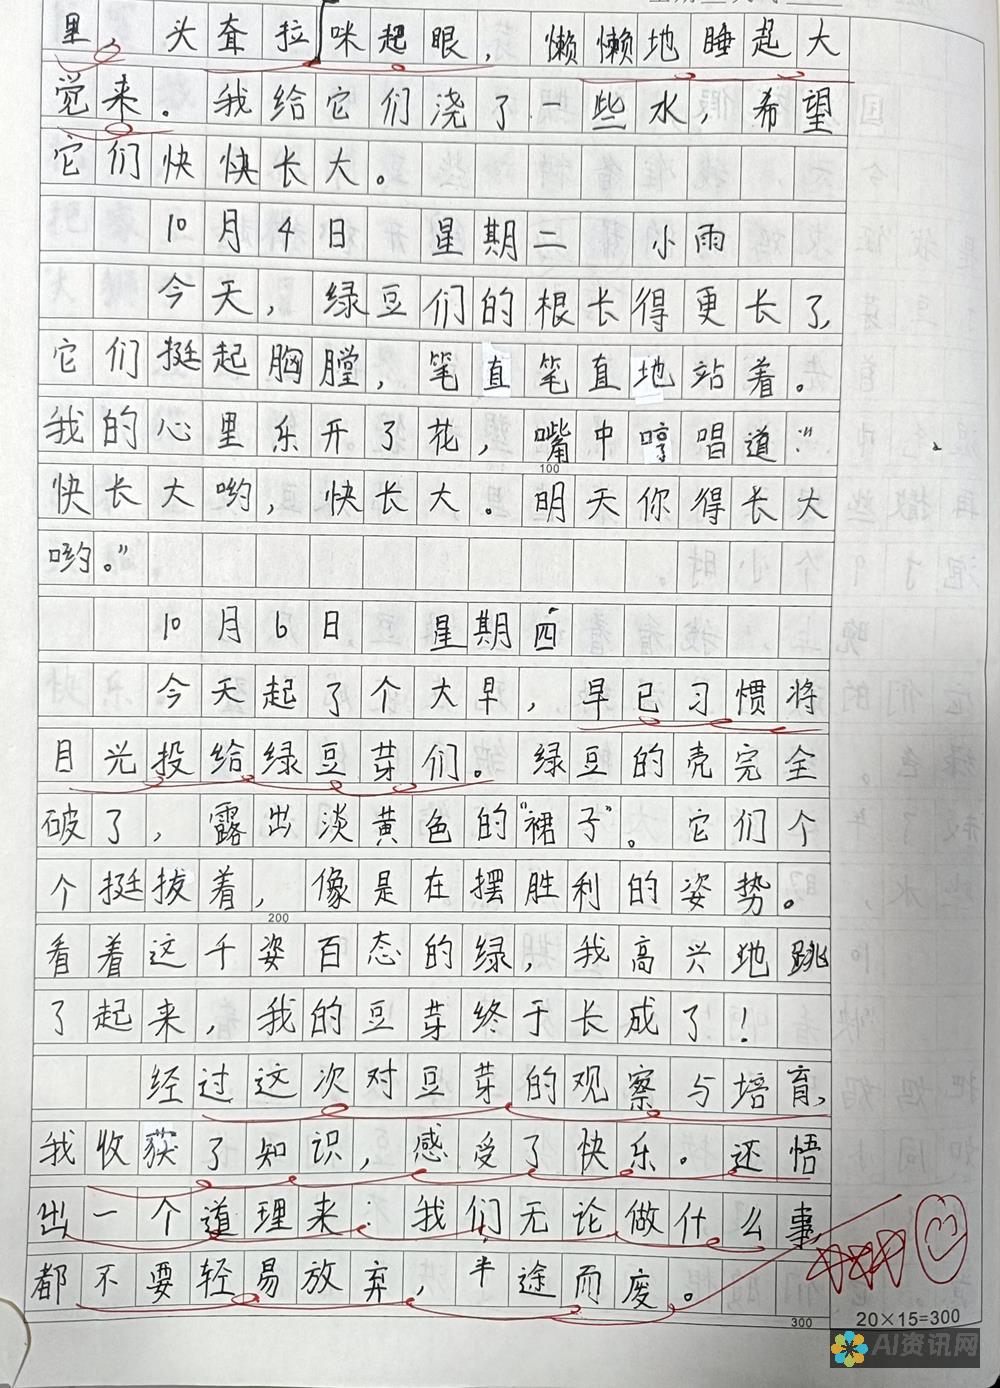 里，头耷拉咪起眼，懒懒地睡起大
觉来。我给它们浇了一些水，希望
它们快快长大。
10月4日 星期二 小雨
今天，绿豆们的根长得更长了，
它们挺起胸膛，笔直笔直地站着。
我的心里乐开了花，嘴中哼唱道：“
快长大哟，快长大。明天你得长大
哟。”
100
10月6日 星期四
今天起了个大早，早已习惯将
目光投给绿豆芽们。绿豆的壳完全
破了，露出淡黄色的“裙子”。它们个
个挺拔着，像是在摆胜利的姿势。
200
看着这千姿百态的绿，我高兴地跳
了起来，我的豆芽终于长成了！
经过这次对豆芽的观察与培育，
我收获了知识，感受了快乐。还悟
出一个道理来：我们无论做什么事，
都不要轻易放弃，半途而废。
300
20×15=300
AI资讯网